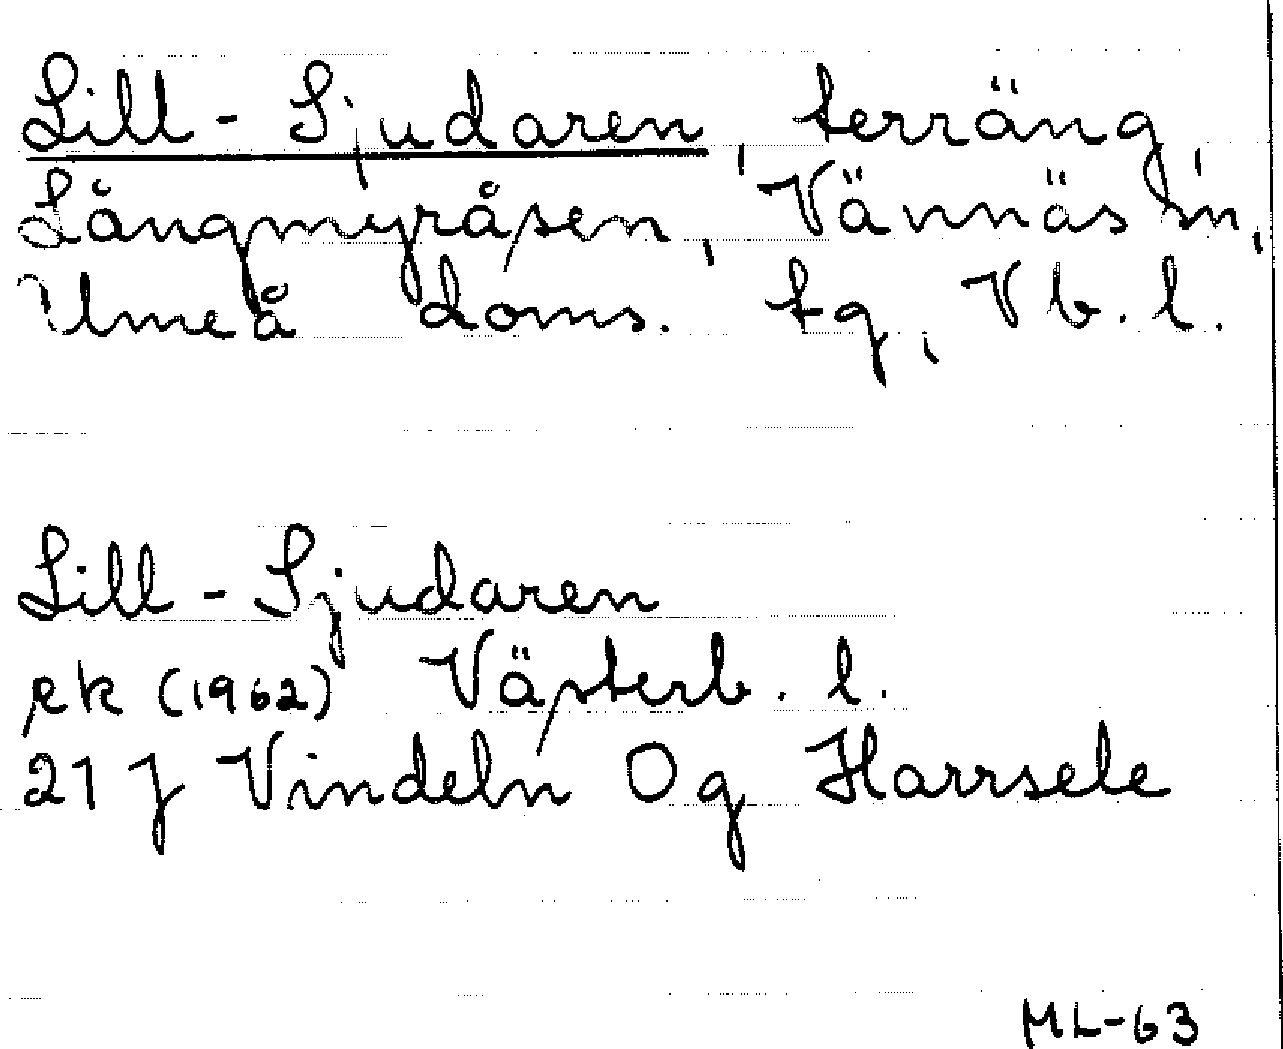 Lill-Sjudaren, terräng,
Långmyråsen, Vännäs sn,
Umeå doms. tg, Vb. l.
Lill-Sjudaren
ek (1962) Västerb. l.
21 J Vindeln Og Harrsele
ML-63